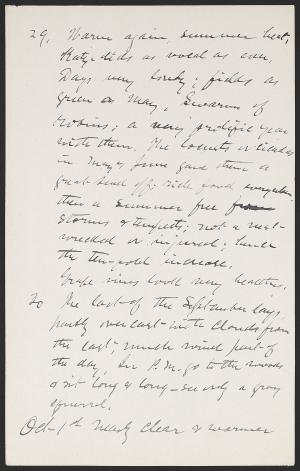 29, Warm again, summer heat,
Katydids as vocal as ever.
Days very lovely; fields as
green as May, Swarms of
robins; a very prolific year
with them. The locusts or cicadas
in May & June gave them a
great send off; rich food everywhere
then a summer free from
storms & tempests; not a nest
wrecked or injured; hence
the ten-fold increase.
Grape vines look very healthy.
30 The last of the September days,
partly overcast with clouds from
the east; much wind part of
the day. In P.M. go to the woods
& sit long & long – see only a gray
squirrel.
Oct 1st Nearly clear & warmer